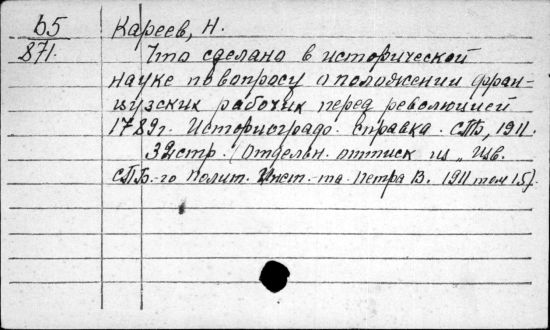 б5
871.
Кареев, Н.
Что сделано в исторической
науке по вопросу о положении фран-
цузских рабочих перед революцией
1789г. Историографо. справка. СПБ, 1911.
32стр. (Отдельн. оттиск из „Изв.
СПБ.-го Полит. Инст.-та Петра В. 1911 том 15).